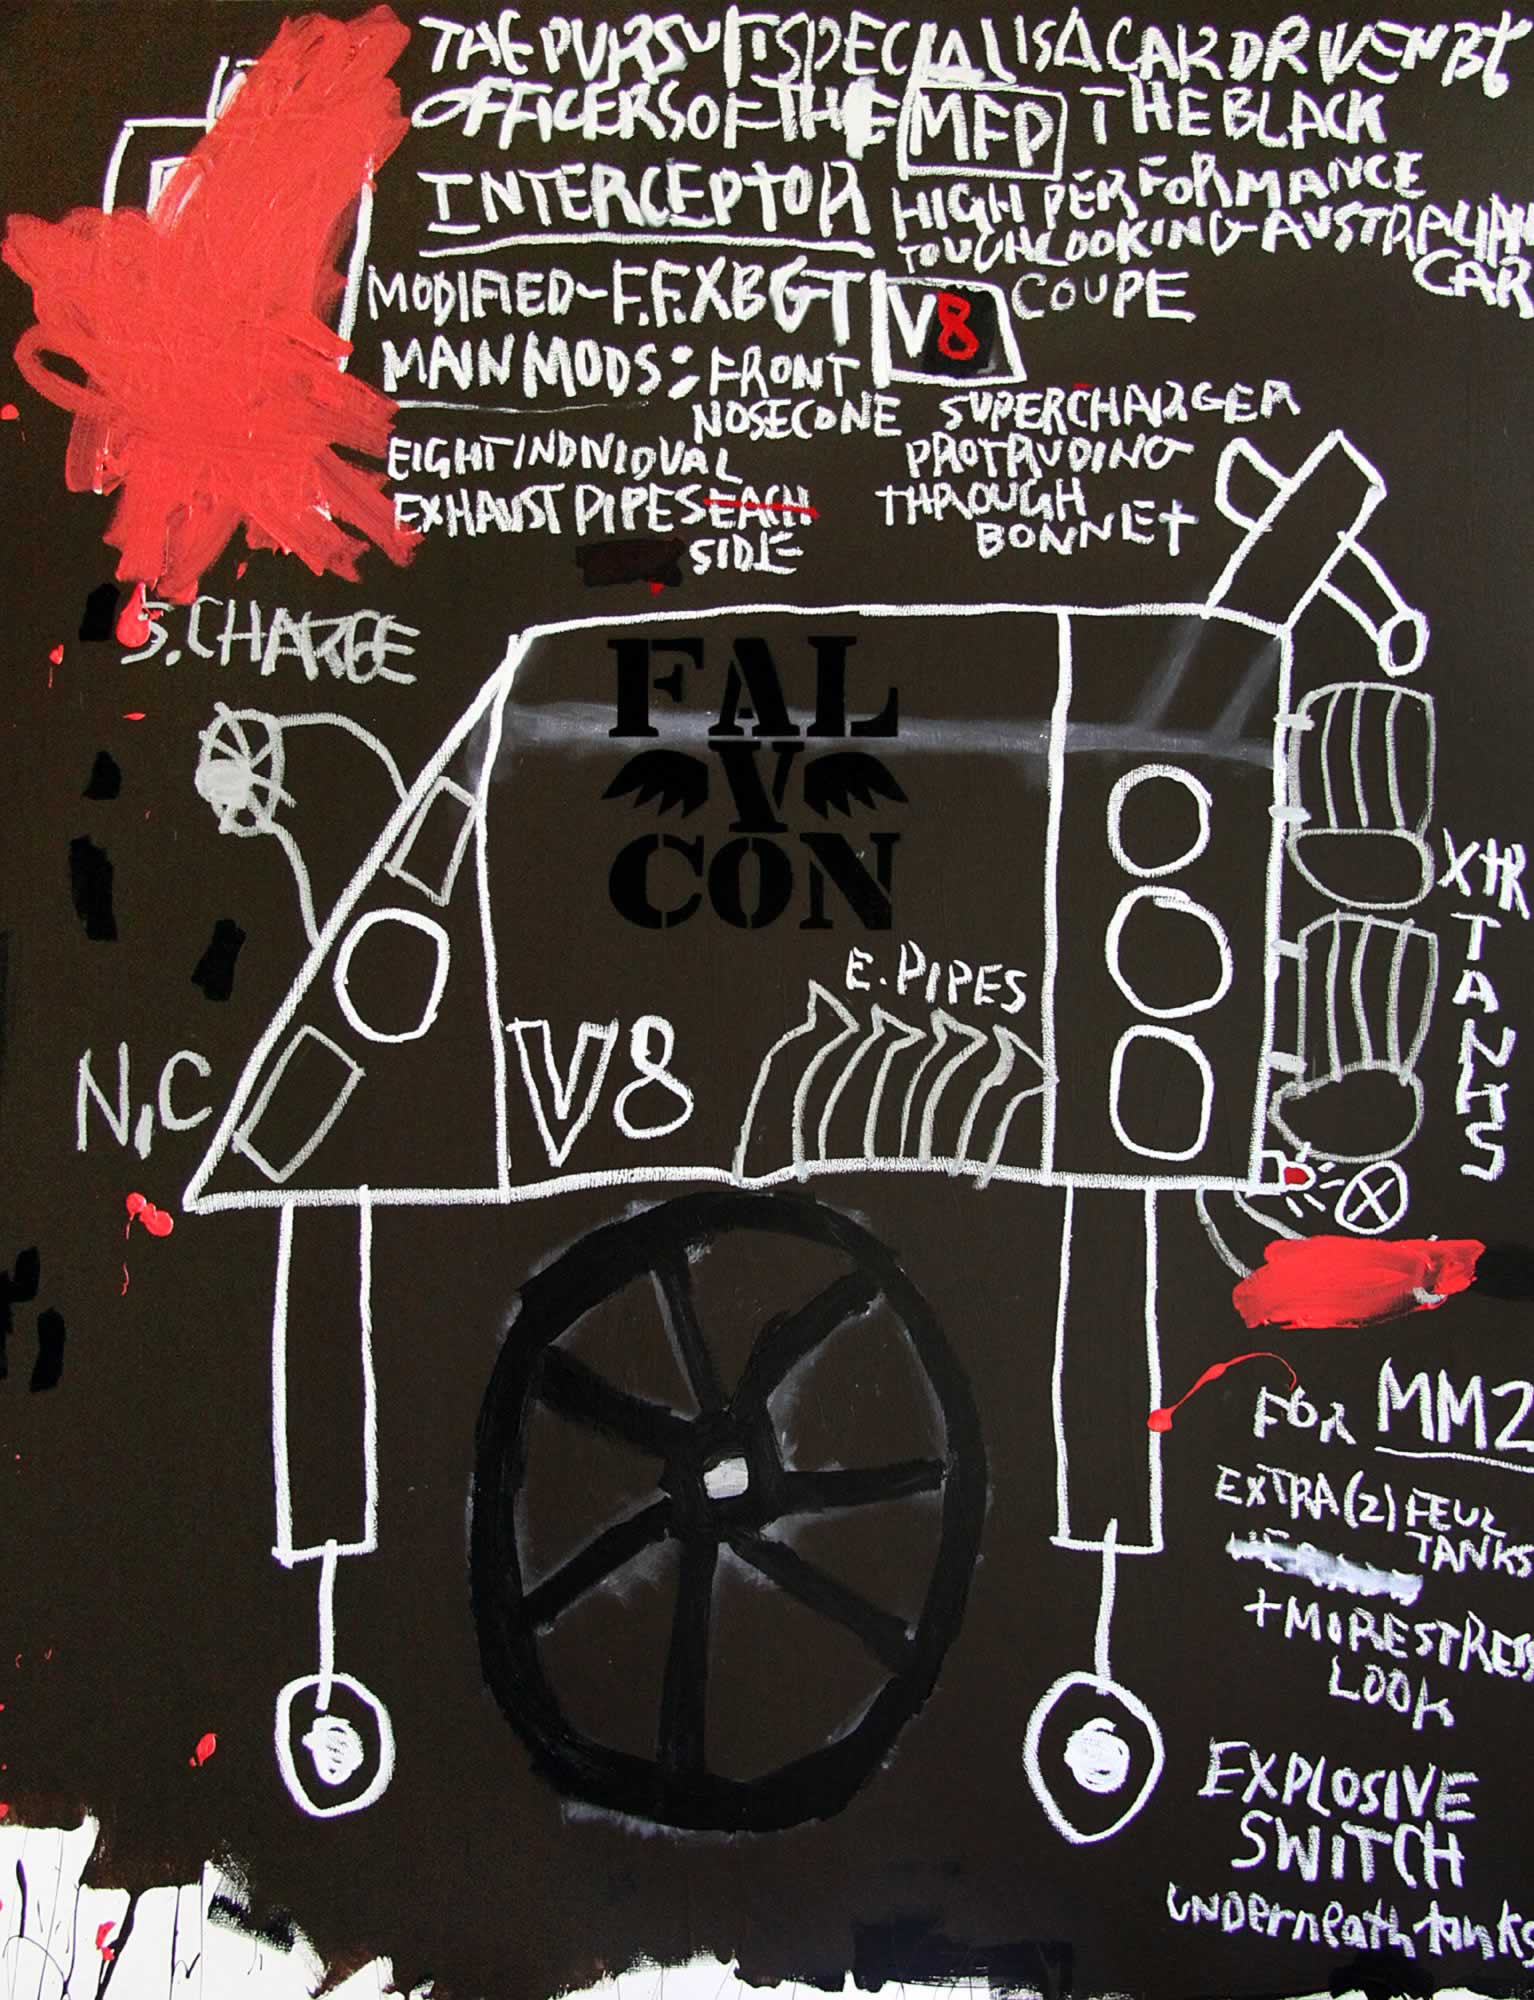 THE PURSUIT SPECIAL IS A CAR DRIVEN BY
OFFICERS OF THE MFP THE BLACK
INTERCEPTOR HIGH PERFORMANCE
TOUGH LOOKING AUSTRALIAN
CAR
MODIFIED - F.F.XBGT V8 COUPE
MAIN MODS: FRONT
NOSECONE
SUPERCHARGER
PROTRUDING
THROUGH
BONNET
EIGHT INDNIDUAL
EXHAUST PIPES EACH
SIDE
S.CHARGE
FAL
V
CON
E. PIPES
N,C
V8
XTR
TANKS
X
FOR MM2
EXTRA (2) FEUL
TANKS
+ MORE STRESS
LOOK
EXPLOSIVE
SWITCH
UNDerneath tanks